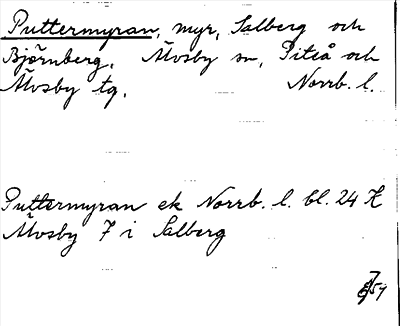 Puttermyran, myr, Salberg och
Björnberg, Älvsby sn, Piteå och
Älvsby tg. Norrb. l.
Puttermyran ek Norrb. l. bl. 24 K
Älvsby 7 i Salberg